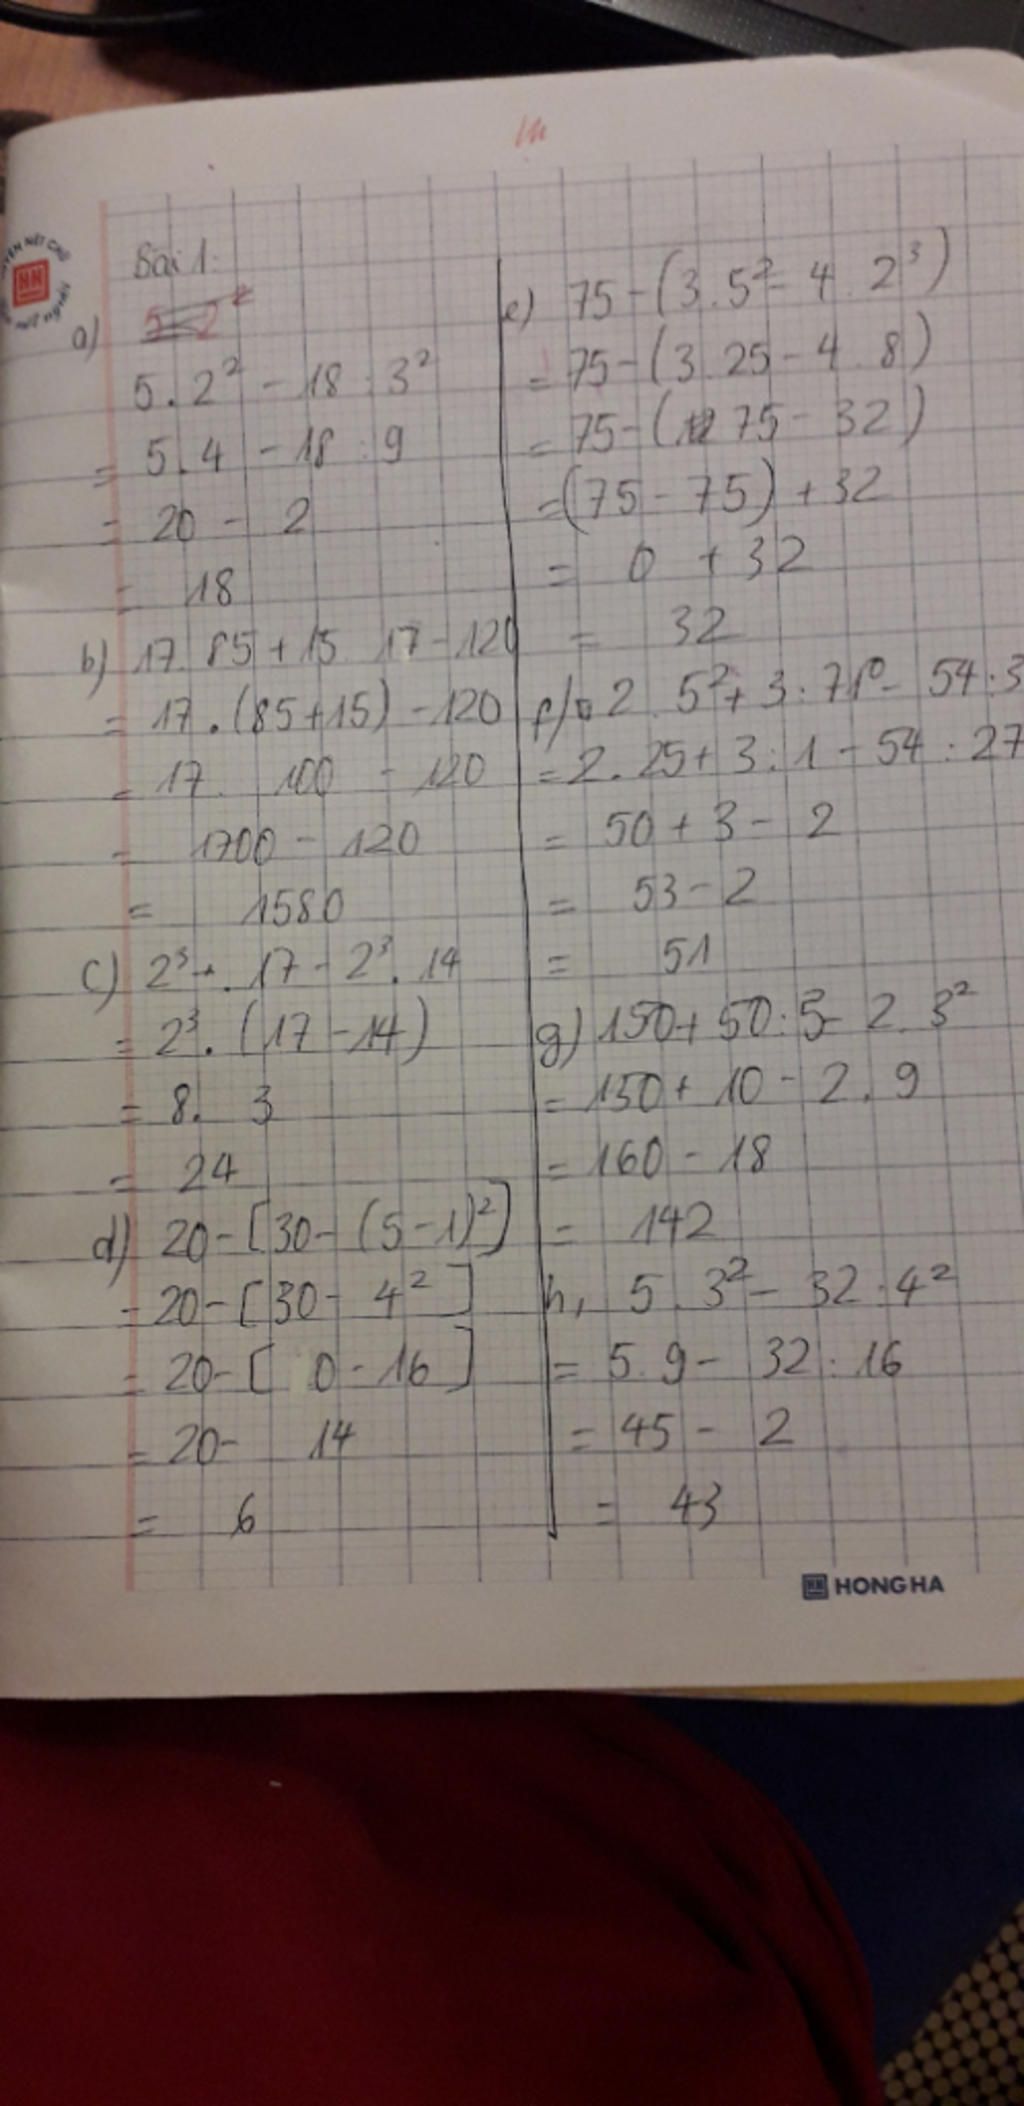 Bài 1:
a)
5.2² - 18 : 3²
= 5.4 - 18 : 9
= 20 - 2
= 18
b) 17. 85 + 15 17 - 120
= 17 . (85+15) - 120
= 17. 100 - 120
= 1700 - 120
= 1580
c) 2³ . 17 - 2³. 14
= 2³. (17 - 14)
= 8. 3
= 24
d) 20 - [30 - (5-1)²]
= 20 - [30 - 4²]
= 20 - [ 0 - 16 ]
= 20 - 14
= 6
e) 75 - (3.5² - 4. 2³)
= 75 - (3. 25 - 4. 8)
= 75 - (75 - 32)
= (75 - 75) + 32
= 0 + 32
= 32
f) 2. 5² + 3 : 71⁰ - 54 : 3
= 2. 25 + 3 : 1 - 54 : 27
= 50 + 3 - 2
= 53 - 2
= 51
g) 150 + 50 : 5 - 2. 3²
= 150 + 10 - 2. 9
= 160 - 18
= 142
h, 5. 3² - 32 : 4²
= 5.9 - 32 : 16
= 45 - 2
= 43
HONG HA